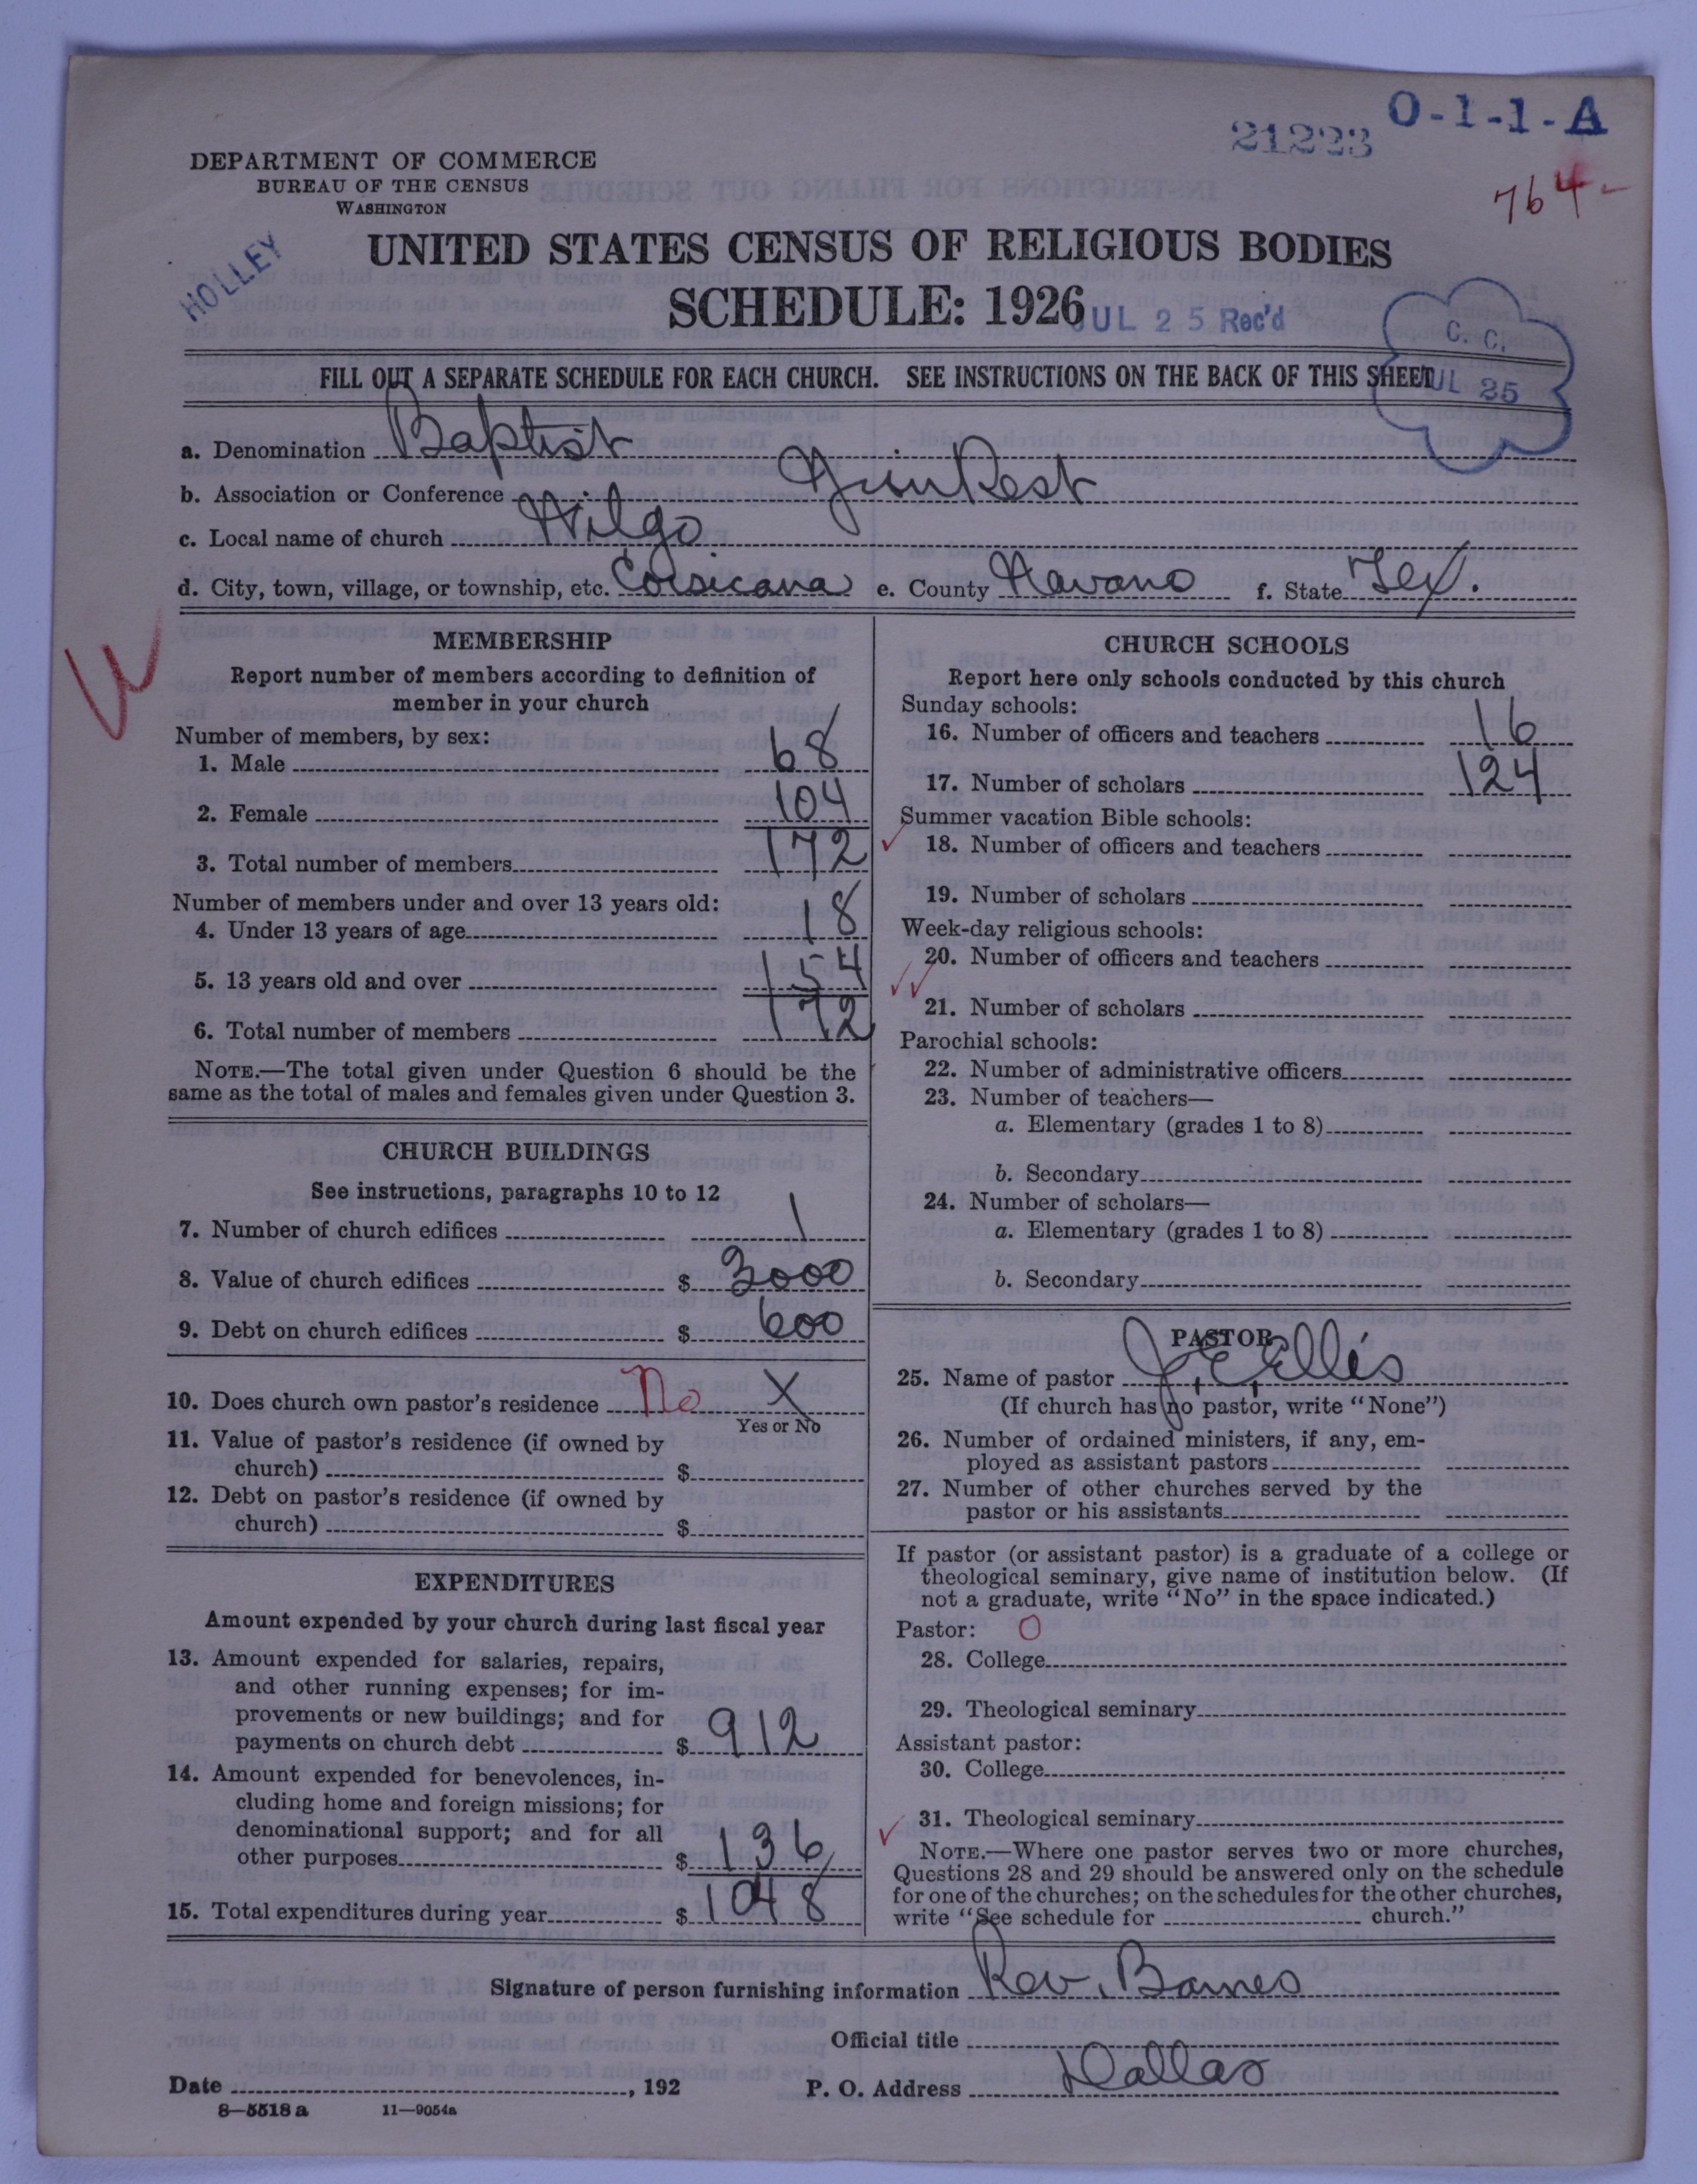 O-1-1-A
21223
764-
DEPARTMENT OF COMMERCE
BUREAU OF THE CENSUS
WASHINGTON
HOLLEY
UNITED STATES CENSUS OF RELIGIOUS BODIES
SCHEDULE: 1926
JUL 25 Rec'd
C. C.
JUL 25
FILL OUT A SEPARATE SCHEDULE FOR EACH CHURCH. SEE INSTRUCTIONS ON THE BACK OF THIS SHEET
a. Denomination Baptist
b. Association or Conference
c. Local name of church
d. City, town, village, or township, etc. Corsicana e. County Navaro f. State Tex.
MEMBERSHIP
Report number of members according to definition of
member in your church
Number of members, by sex:
1. Male 68
2. Female 104
3. Total number of members 172
Number of members under and over 13 years old:
4. Under 13 years of age 18
5. 13 years old and over 154
6. Total number of members 172
NOTE.—The total given under Question 6 should be the
same as the total of males and females given under Question 3.
CHURCH BUILDINGS
See instructions, paragraphs 10 to 12
7. Number of church edifices 1
8. Value of church edifices $ 3000
9. Debt on church edifices $ 600
10. Does church own pastor's residence No X
Yes or No
11. Value of pastor's residence (if owned by
church) $
12. Debt on pastor's residence (if owned by
church) $
EXPENDITURES
Amount expended by your church during last fiscal year
13. Amount expended for salaries, repairs,
and other running expenses; for im-
provements or new buildings; and for
payments on church debt $ 912
14. Amount expended for benevolences, in-
cluding home and foreign missions; for
denominational support; and for all
other purposes $ 136
15. Total expenditures during year $ 1048
CHURCH SCHOOLS
Report here only schools conducted by this church
Sunday schools:
16. Number of officers and teachers 16
17. Number of scholars 124
Summer vacation Bible schools:
18. Number of officers and teachers
19. Number of scholars
Week-day religious schools:
20. Number of officers and teachers
21. Number of scholars
Parochial schools:
22. Number of administrative officers
23. Number of teachers—
a. Elementary (grades 1 to 8)
b. Secondary
24. Number of scholars—
a. Elementary (grades 1 to 8)
b. Secondary
PASTOR
25. Name of pastor J. E. Ellis
(If church has no pastor, write "None")
26. Number of ordained ministers, if any, em-
ployed as assistant pastors
27. Number of other churches served by the
pastor or his assistants
If pastor (or assistant pastor) is a graduate of a college or
theological seminary, give name of institution below. (If
not a graduate, write "No" in the space indicated.)
Pastor: O
28. College
29. Theological seminary
Assistant pastor:
30. College
31. Theological seminary
NOTE.—Where one pastor serves two or more churches,
Questions 28 and 29 should be answered only on the schedule
for one of the churches; on the schedules for the other churches,
write "See schedule for church."
Signature of person furnishing information Rev. Barnes
Official title
Date , 192 P. O. Address Dallas
8—5518 a 11—9054a